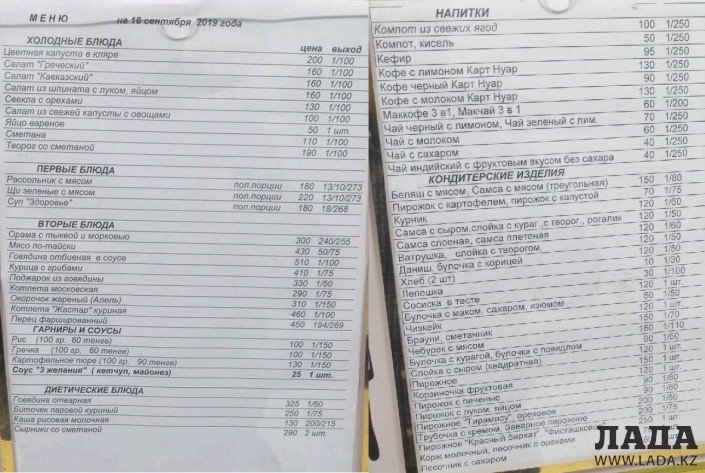 МЕНЮ на 16 сентября 2019 года
ХОЛОДНЫЕ БЛЮДА цена выход
Цветная капуста в кляре 200 1/100
Салат "Греческий" 160 1/100
Салат "Кавказский" 160 1/100
Салат из шпината с луком, яйцом 160 1/100
Свекла с орехами 130 1/100
Салат из свежей капусты с овощами 100 1/100
Яйцо вареное 50 1 шт.
Сметана 110 1/100
Творог со сметаной 190 1/100
ПЕРВЫЕ БЛЮДА
Рассольник с мясом пол.порции 180 13/10/273
Щи зеленые с мясом пол.порции 220 13/10/273
Суп "Здоровье" пол.порции 180 18/268
ВТОРЫЕ БЛЮДА
Орама с тыквой и морковью 300 240/255
Мясо по-тайски 430 50/75
Говядина отбивная в соусе 510 1/100
Курица с грибами 410 1/75
Поджарок из говядины 330 1/50
Котлета московская 290 1/75
Окорочок жареный (Апель) 310 1/150
Котлета "Жастар" куриная 460 1/100
Перец фаршированный 450 194/269
ГАРНИРЫ И СОУСЫ
Рис (100 гр. 60 тенге) 100 1/150
Гречка (100 гр. 60 тенге) 100 1/150
Картофельное пюре (100 гр. 90 тенге) 130 1/150
Соус "3 желания" ( кетчуп, майонез) 25 1 шт.
ДИЕТИЧЕСКИЕ БЛЮДА
Говядина отварная 325 1/50
Биточек паровой куриный 250 1/75
Каша рисовая молочная 130 200/215
Сырники со сметаной 290 2 шт.
НАПИТКИ
Компот из свежих ягод 100 1/250
Компот, кисель 50 1/250
Кефир 95 1/250
Кофе с лимоном Карт Нуар 130 1/250
Кофе черный Карт Нуар 90 1/250
Кофе с молоком Карт Нуар 130 1/250
Маккофе 3 в1, Макчай 3 в 1 60 1/200
Чай черный с лимоном, Чай зеленый с лим. 70 1/250
Чай с молоком 60 1/250
Чай с сахаром 40 1/250
Чай индийский с фруктовым вкусом без сахара 40 1/250
КОНДИТЕРСКИЕ ИЗДЕЛИЯ
Беляш с мясом, Самса с мясом (треугольная) 150 1/80
Пирожок с картофелем, пирожок с капустой 70 1/75
Курник
Самса с сыром,слойка с кураг.,с творог., рогалик
Самса слоеная, самса плетеная
Ватрушка, слойка с творогом,
Даниш, булочка с корицей
Хлеб (2 шт) 10 1/30
Лепешка 30 1/100
Сосиска в тесте
Булочка с маком, сахаром, изюмом
Чизкейк
Брауни, сметанник
Чебурек с мясом 180 1/110
Булочка с курагой, булочка с повидлом
Слойка с сыром (квадратная)
Пирожное
Корзиночка фруктовая
Пирожок с печенью
Пирожок с луком, яйцом
Пирожное "Тирамису" ореховое
Трубочка с кремом, Заварное пирожное
Пирожное "Красный бархат", "Фисташковое
Корж молочный, песочник с орехами
Песочник с сахаром
ЛАДА
WWW.LADA.KZ